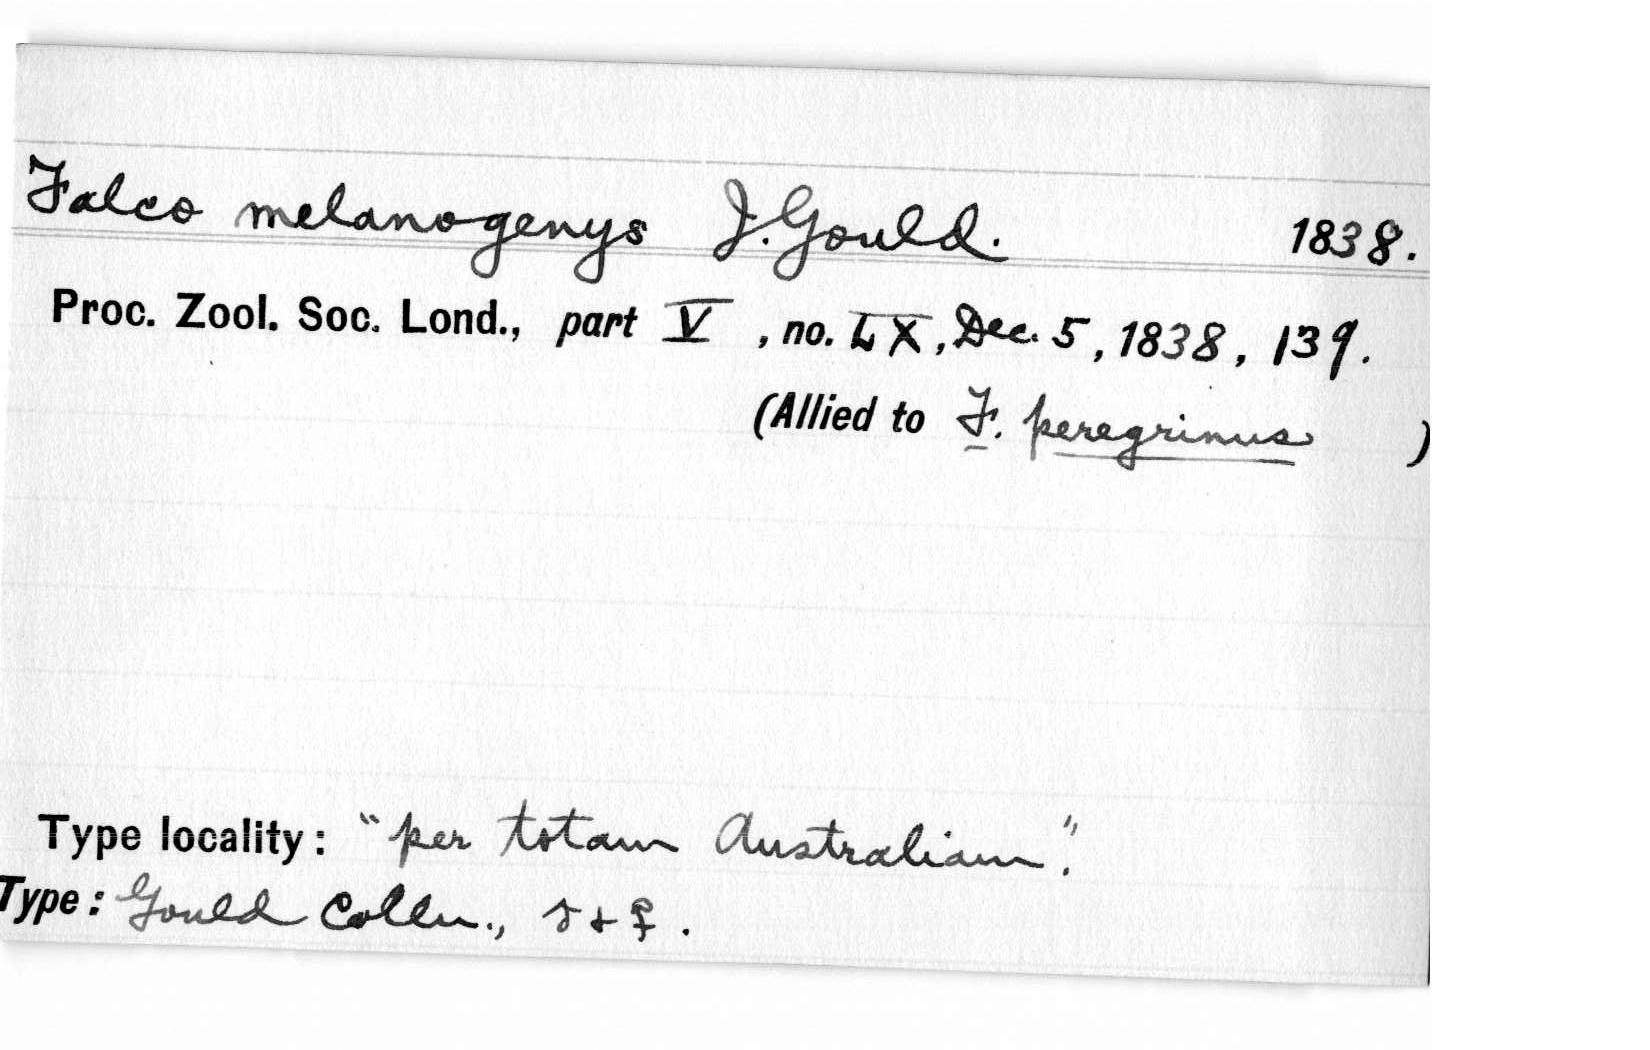 Falco melanogenys J. Gould. 1838.
Proc. Zool. Soc. Lond., part V, no. LX, Dec. 5, 1838, 139.
(Allied to F. peregrinus )
Type locality: "per totam Australiam".
Type: Gould Colln., ♂ + ♀.